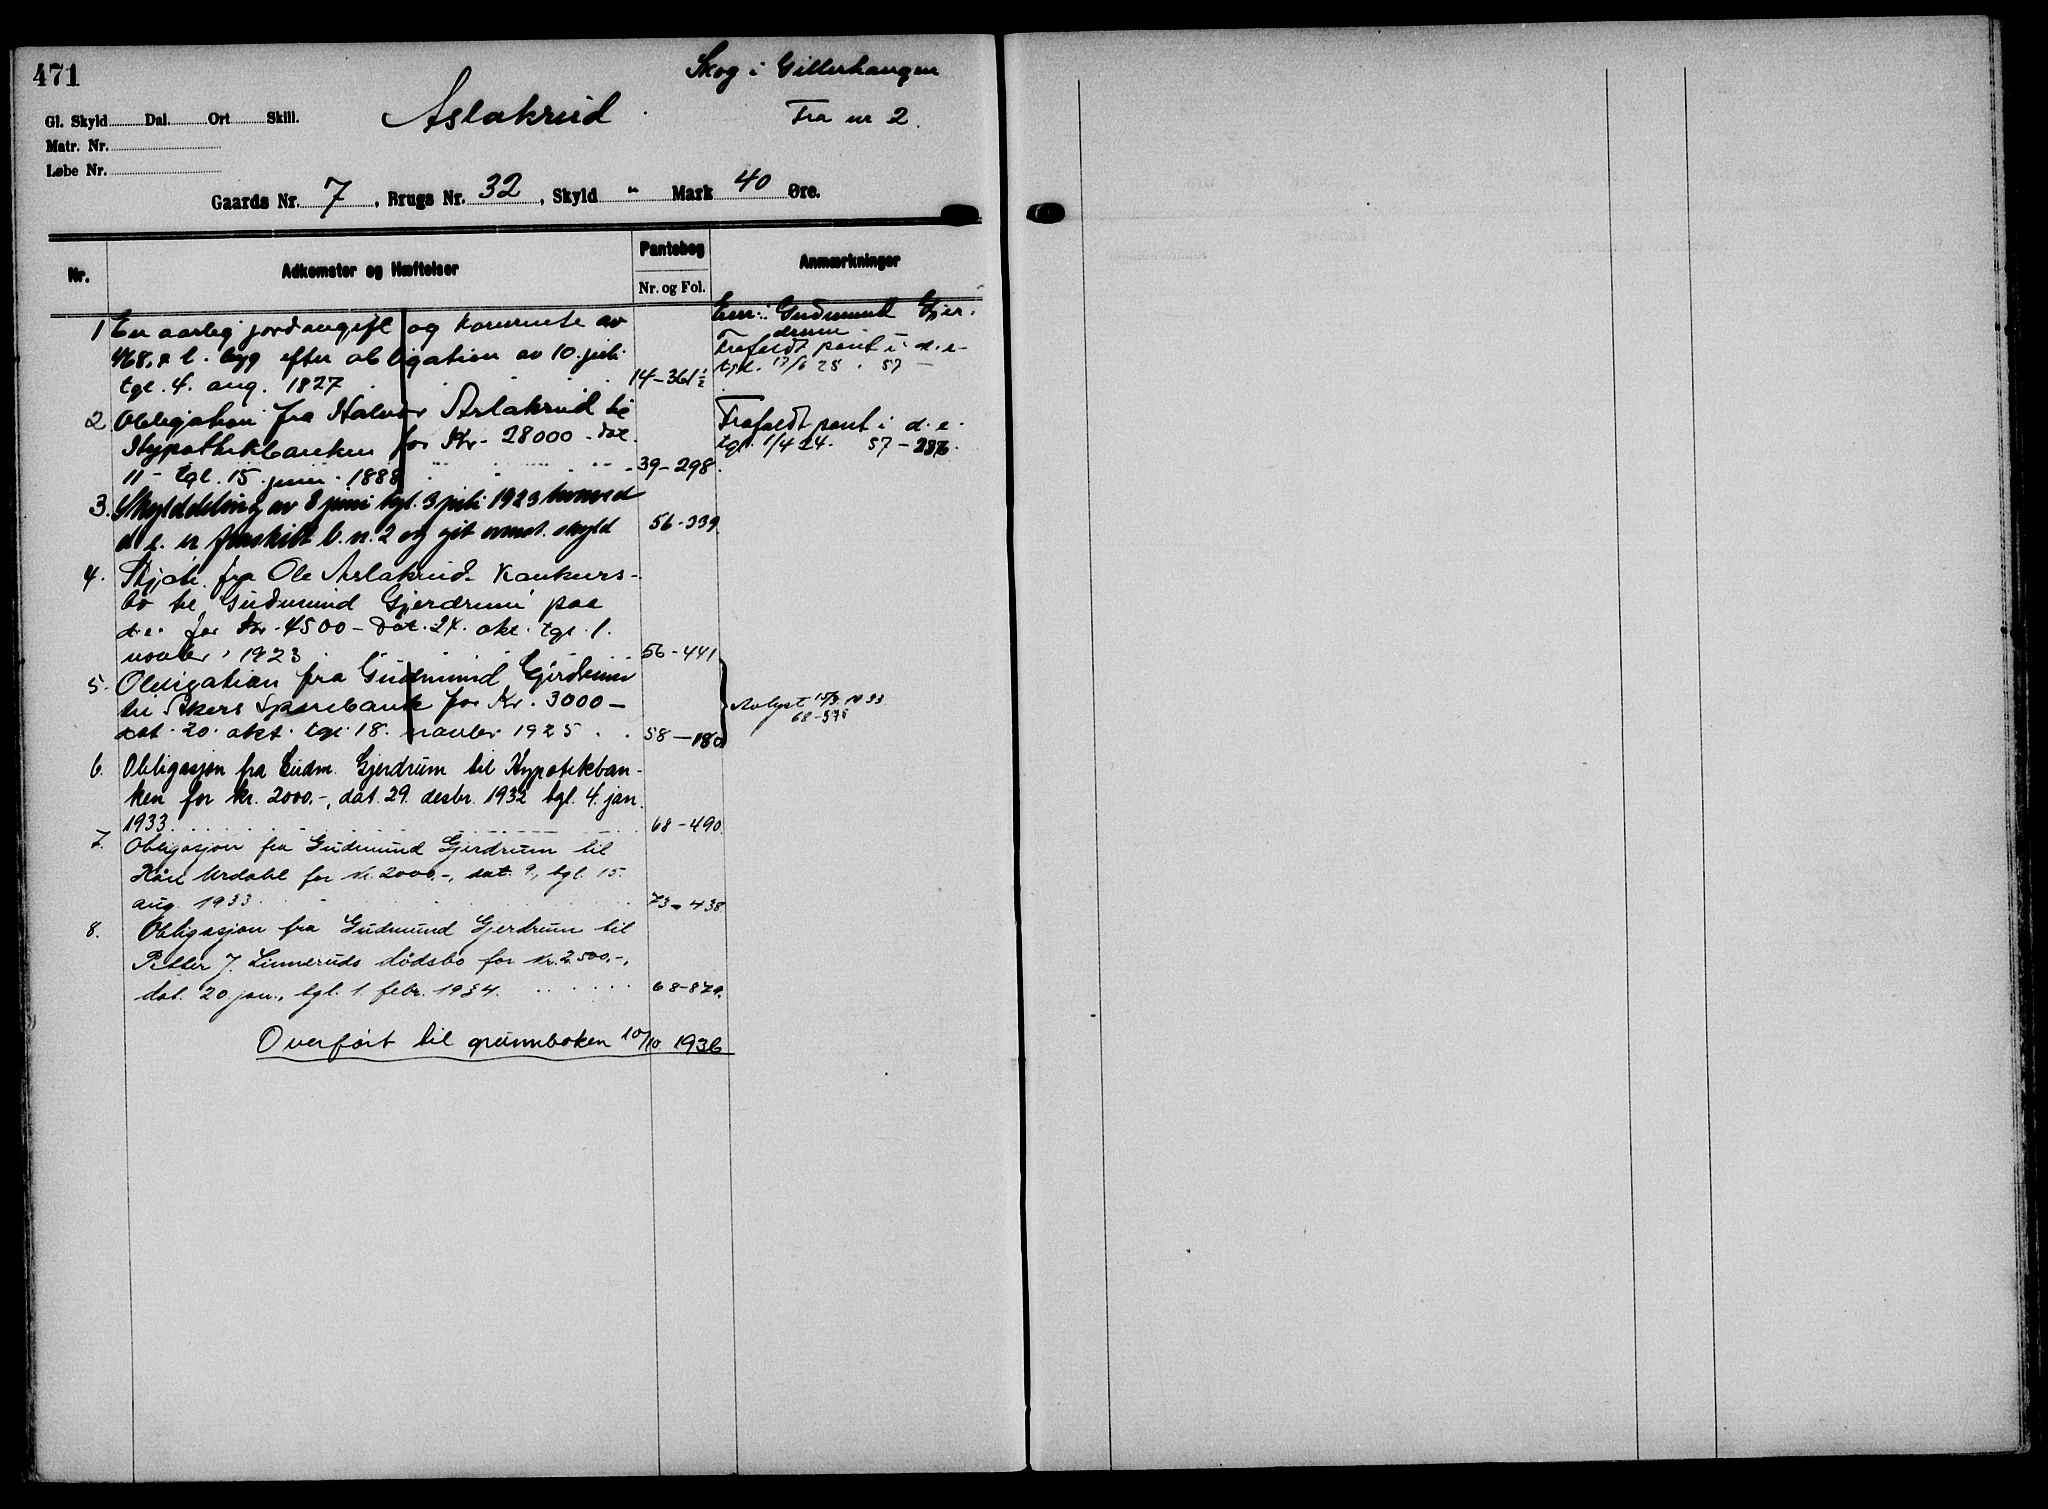 471
Skog i Gillerhaugen
Aslakrud.
Fra nr 2.
Gl. Skyld Dal. Ort Skill.
Matr. Nr.
Løbe Nr.
Gaards Nr. 7, Brugs Nr. 32, Skyld " Mark 40 Øre.
Nr.
Adkomster og Hæftelser
Pantebog
Nr. og Fol.
Anmærkninger
1 En aarlig jordavgift og kornrente av
t. byg efter obligation av 10. juli
tgl. 4. aug. 1827 14-361½
Gudmund Gjer-
drum
Frafaldt pant i d. e.
57 -
2 Obligation fra Halvor Aslakrud til
Hypothekbanken for Kr. 28000 - dat.
11 - tgl. 15. juni 1888 39-298.
Frafaldt pant i d. e.
tgl. 1/4 24. 57-236.
3. Skylddeling av 8 juni tgl. 3 juli 1923 hvorved
d. e. er fraskilt b. n. 2 og git ovenst. skyld 56-339
4. Skjøte fra Ole Aslakruds Konkurs-
bo til Gudmund Gjerdrum paa
d. e. for Kr. 4500 - dat. 24. okt. tgl. 1.
novbr. 1923 56-441
5. Obligation fra Gudmund Gjerdrum
til Akers Sparebank for Kr. 3000 -
dat. 20. okt. tgl. 18. novbr. 1925 . . 58-180
Avlyst 15/3 1933
68-575
6. Obligasjon fra Gudm. Gjerdrum til Hypotekban-
ken for kr. 2000.-, dat. 29. desbr. 1932 tgl. 4. jan.
1933. 68-490
7. Obligasjon fra Gudmund Gjerdrum til
Kåre Urdahl for kr. 2000.-, dat. 9., tgl. 15.
aug. 1933 73-438
8. Obligasjon fra Gudmund Gjerdrum til
Petter J. Linneruds dødsbo for kr. 2500.-,
dat. 20. jan., tgl. 1. febr. 1934. 68-879.
Overført til grunnboken 10/10 1936